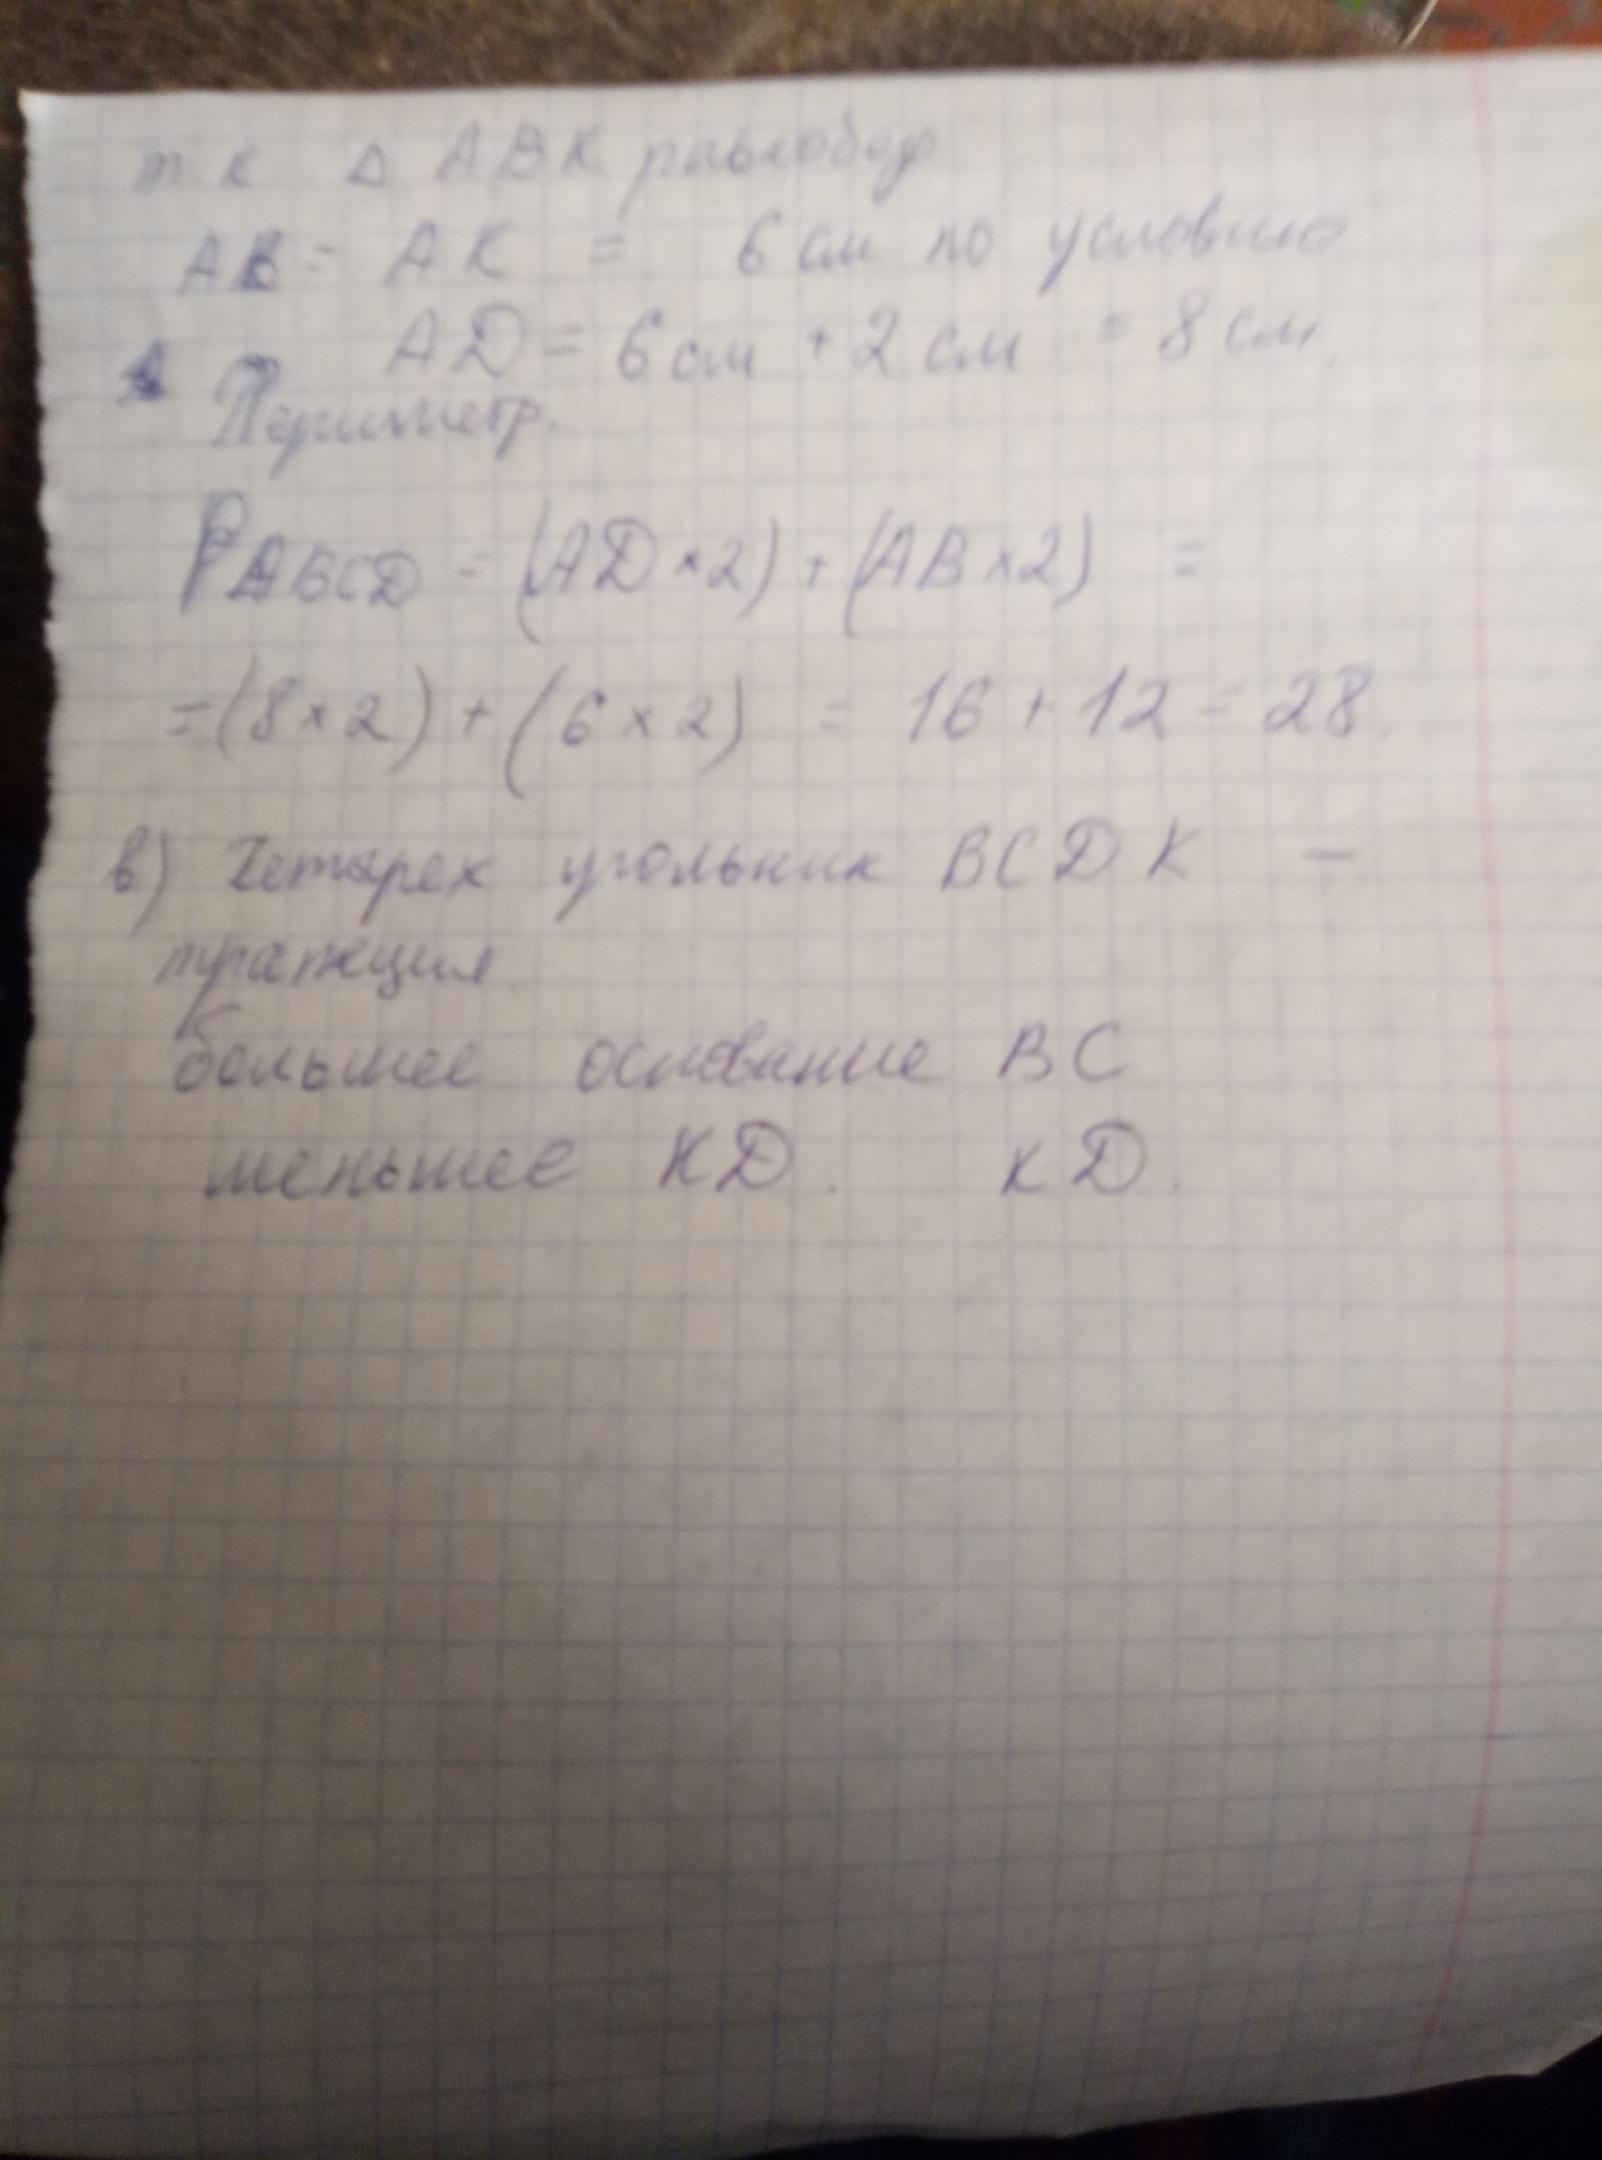 т.к Δ ABK равнобед
AB = AK = 6 см по условию
AD = 6 см + 2 см = 8 см.
Периметр.
PABCD = (AD × 2) + (AB × 2) =
= (8 × 2) + (6 × 2) = 16 + 12 = 28.
в) Четырех угольник BCDK —
трапеция.
большее основание BC
меньшее KD. KD.